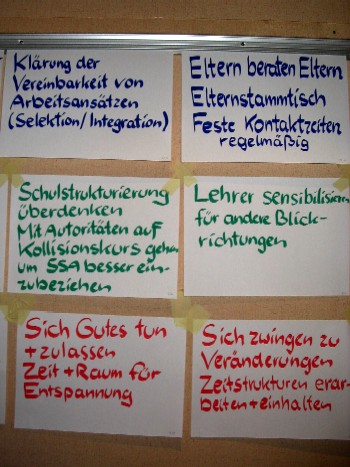 Klärung der
Vereinbarkeit von
Arbeitsansätzen
(Selektion/Integration)
Eltern beraten Eltern
Elternstammtisch
Feste Kontaktzeiten
regelmäßig
Schulstrukturierung
überdenken
Mit Autoritäten auf
Kollisionskurs gehen
um SSA besser ein-
zubeziehen
Lehrer sensibilisieren
für andere Blick-
richtungen
Sich Gutes tun
+ zulassen
Zeit + Raum für
Entspannung
Sich zwingen zu
Veränderungen
Zeitstrukturen erar-
beiten + einhalten